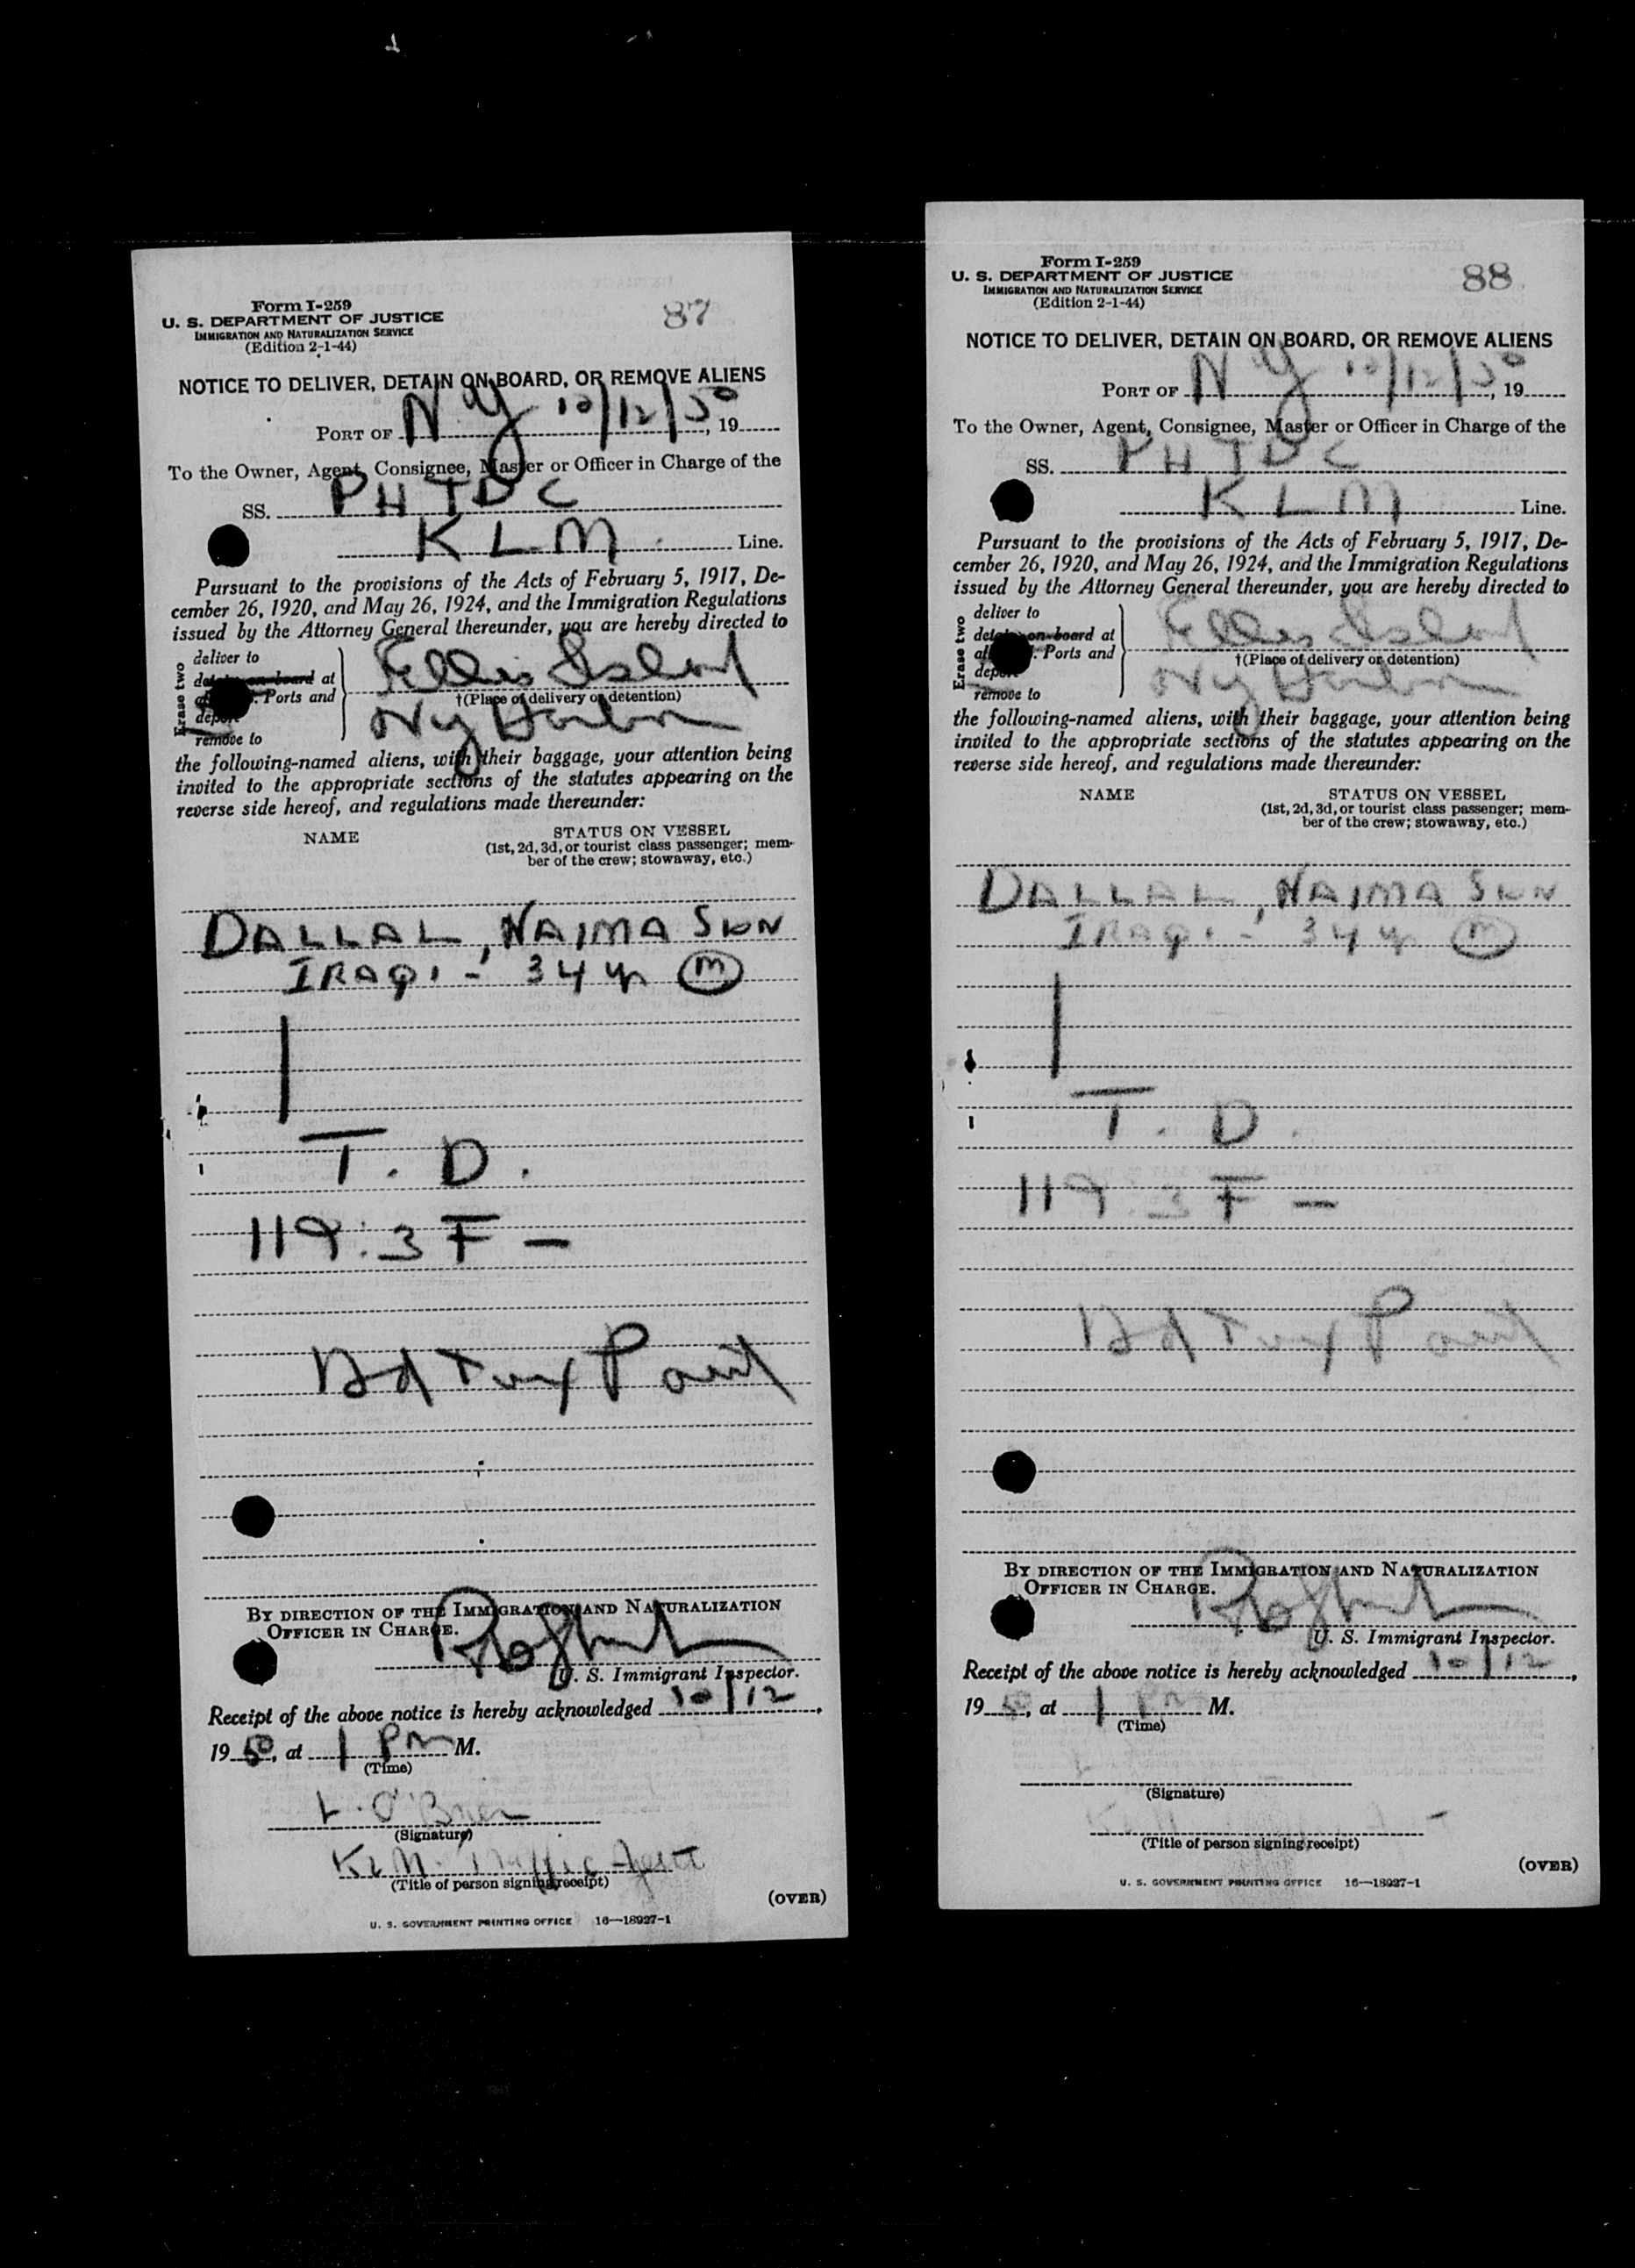 Form I-259
U. S. DEPARTMENT OF JUSTICE
IMMIGRATION AND NATURALIZATION SERVICE
(Edition 2-1-44)
87
NOTICE TO DELIVER, DETAIN ON BOARD, OR REMOVE ALIENS
PORT OF N Y 10/12/50, 19
To the Owner, Agent, Consignee, Master or Officer in Charge of the
SS. PH TDC
KLM Line.
Pursuant to the provisions of the Acts of February 5, 1917, De-
cember 26, 1920, and May 26, 1924, and the Immigration Regulations
issued by the Attorney General thereunder, you are hereby directed to
Erase two
deliver to
on board at
Ports and
remove to
Ellis Island
†(Place of delivery or detention)
NY Harbor
the following-named aliens, with their baggage, your attention being
invited to the appropriate sections of the statutes appearing on the
reverse side hereof, and regulations made thereunder:
NAME
STATUS ON VESSEL
(1st, 2d, 3d, or tourist class passenger; mem-
ber of the crew; stowaway, etc.)
DALLAL, NAIMA
IRAQI - 34 yr (M)
T. D.
119.3 F -
Hd Tax Paid
BY DIRECTION OF THE IMMIGRATION AND NATURALIZATION
OFFICER IN CHARGE.
U. S. Immigrant Inspector.
Receipt of the above notice is hereby acknowledged 10/12,
19 50, at 1 PM M.
(Time)
L. O'Brien
(Signature)
KLM Traffic Agent
(Title of person signing receipt)
(OVER)
U. S. GOVERNMENT PRINTING OFFICE 16—18927-1
Form I-259
U. S. DEPARTMENT OF JUSTICE
IMMIGRATION AND NATURALIZATION SERVICE
(Edition 2-1-44)
88
NOTICE TO DELIVER, DETAIN ON BOARD, OR REMOVE ALIENS
PORT OF N Y 10/12/50, 19
To the Owner, Agent, Consignee, Master or Officer in Charge of the
SS. PH TDC
KLM Line.
Pursuant to the provisions of the Acts of February 5, 1917, De-
cember 26, 1920, and May 26, 1924, and the Immigration Regulations
issued by the Attorney General thereunder, you are hereby directed to
Erase two
deliver to
on board at
Ports and
remove to
Ellis Island
†(Place of delivery or detention)
NY Harbor
the following-named aliens, with their baggage, your attention being
invited to the appropriate sections of the statutes appearing on the
reverse side hereof, and regulations made thereunder:
NAME
STATUS ON VESSEL
(1st, 2d, 3d, or tourist class passenger; mem-
ber of the crew; stowaway, etc.)
DALLAL, NAIMA
IRAQI - 34 yr (M)
T. D.
119.3 F -
Hd Tax Paid
BY DIRECTION OF THE IMMIGRATION AND NATURALIZATION
OFFICER IN CHARGE.
U. S. Immigrant Inspector.
Receipt of the above notice is hereby acknowledged 10/12,
19 50, at 1 PM M.
(Time)
(Signature)
(Title of person signing receipt)
(OVER)
U. S. GOVERNMENT PRINTING OFFICE 16—18927-1